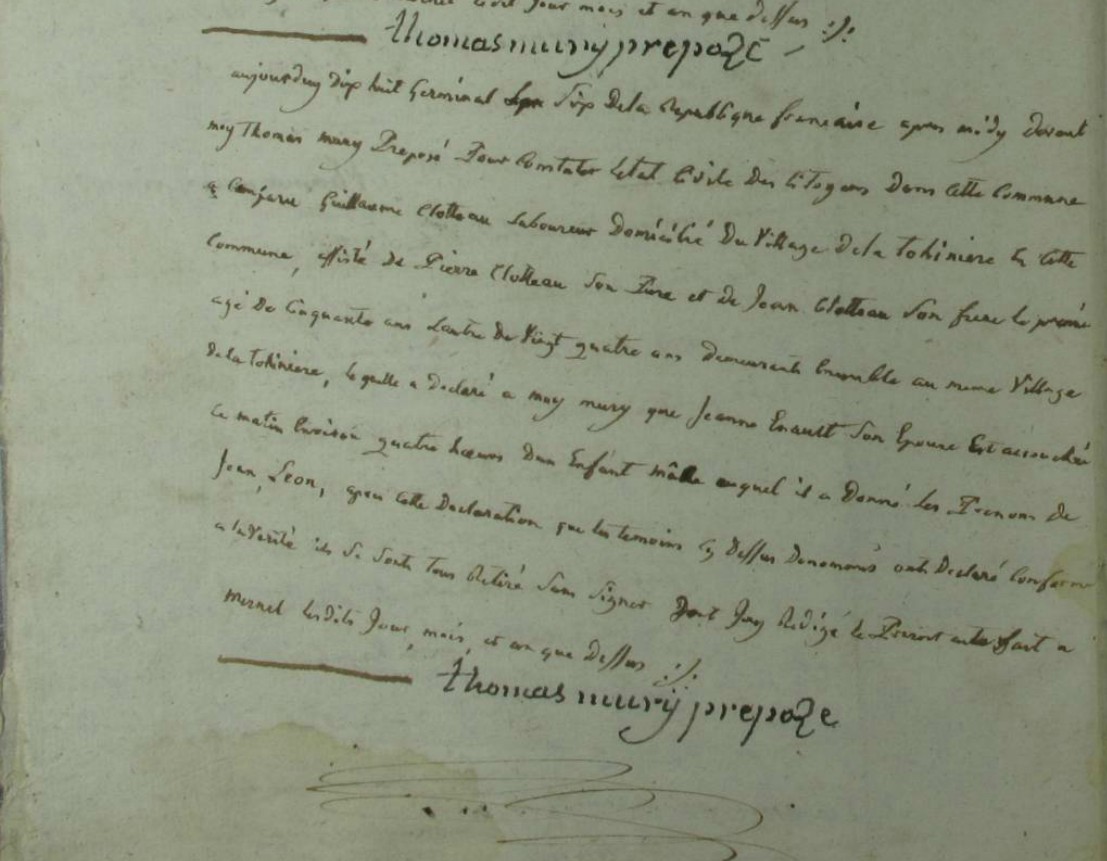 jour mois et an que dessus ./.
thomas mury prepozé
aujourduy dix huit Germinal an Six De la Republique francaise apres midy Devant
moy Thomas mury Preposé Pour Constater Letat Civile Des Citoyens Dans Cette Commune
a Comparu Guillaume Clotteau Laboureur Domicilié Du Village De la tohiniere En Cette
Commune, assisté De Pierre Clotteau Son Pere et de Jean Clotteau Son frere le premié
agé De Cinquante ans Lautre De Vingt quatre ans Demeurants Ensemble au meme Village
De la tohiniere, lequelle a Declaré a moy mury que Jeanne Enault Son Epouse Est accouchée
Ce matin Environ quatre heures Dun Enfant mâlle auquel il a Donné les Prenoms de
Jean, Leon, apres Cette Declaration que les temoins Cy Dessus Denommés ont Declaré Conforme
a la Verité ils Se Sont tous Retiré Sans Signer Dont Jay Redigé le Present acte fait a
mernel lesdits Jour, mois, et an que Dessus ./.
thomas murÿ prepoze